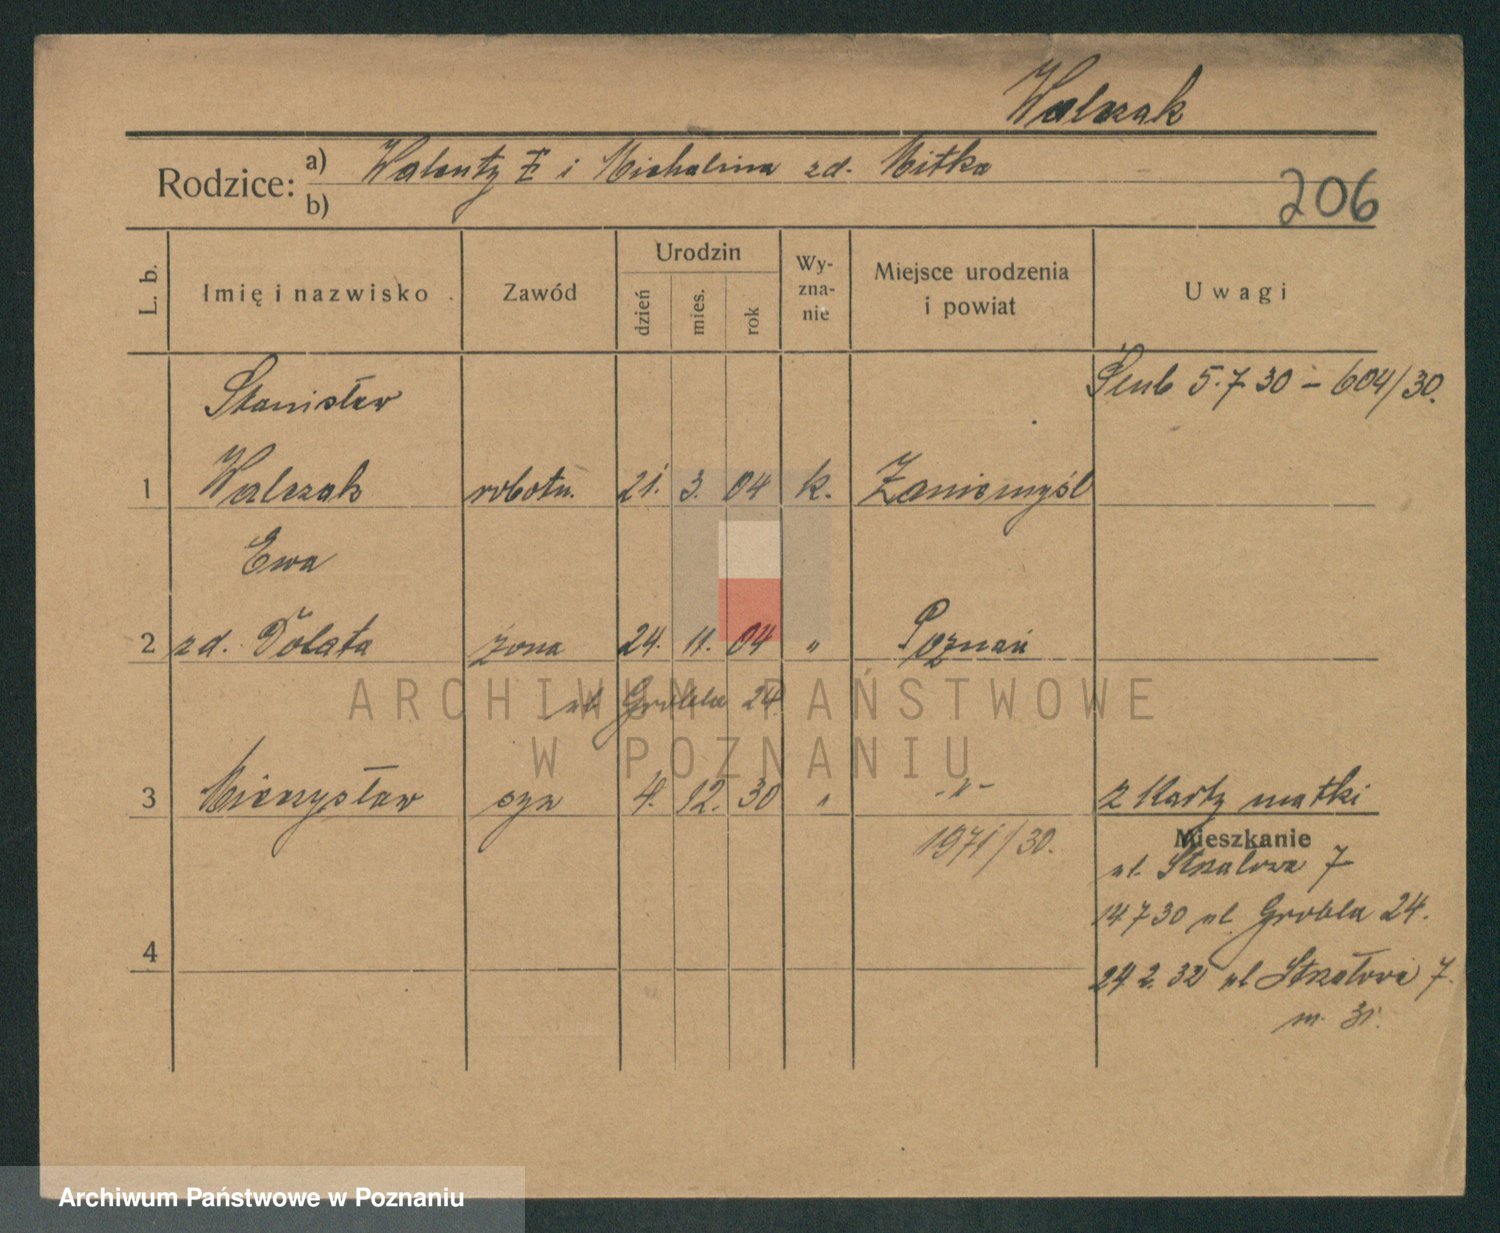 Walczak
Rodzice: a) Walenty i Michalina zd. Mitka
b)
206
L. b. Imię i nazwisko Zawód Urodzin dzień mies. rok Wyznanie Miejsce urodzenia i powiat Uwagi
Stanisław Ślub 5.7 30 – 604/30.
1 Walczak robotn. 21. 3. 04 k. Zaniemyśl
Ewa
2 zd. Dolata żona 24. 11. 04 " Poznań
ul Grobla 24
3 Mieczysław syn 4. 12. 30 " -"- z Karty matki
1971/30.
Mieszkanie
ul. Strzałowa 7
14 7 30 ul Grobla 24.
4
24 2. 32 ul Strzałowa 7.
m. 31.
ARCHIWUM PAŃSTWOWE
W POZNANIU
Archiwum Państwowe w Poznaniu